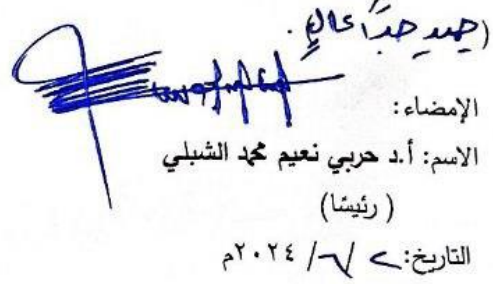 (جيد جدًا عالٍ).
الإمضاء:
الاسم: أ.د حربي نعيم محمد الشبلي
( رئيسًا)
التاريخ: ٢ /٦/ ٢٠٢٤م